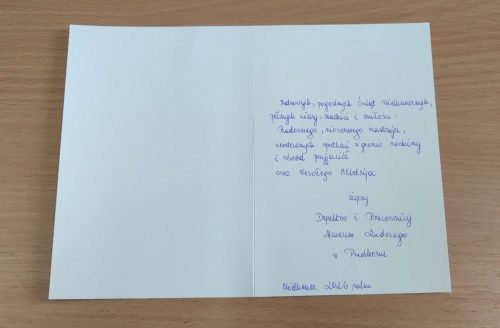 Zdrowych, pogodnych Świąt Wielkanocnych,
pełnych wiary, nadziei i miłości.
Radosnego, wiosennego nastroju,
serdecznych spotkań w gronie rodziny
i wśród przyjaciół
oraz wesołego Alleluja
życzy
Dyrektor i Pracownicy
Muzeum Ludowego
w
Wielkanoc 2026 roku